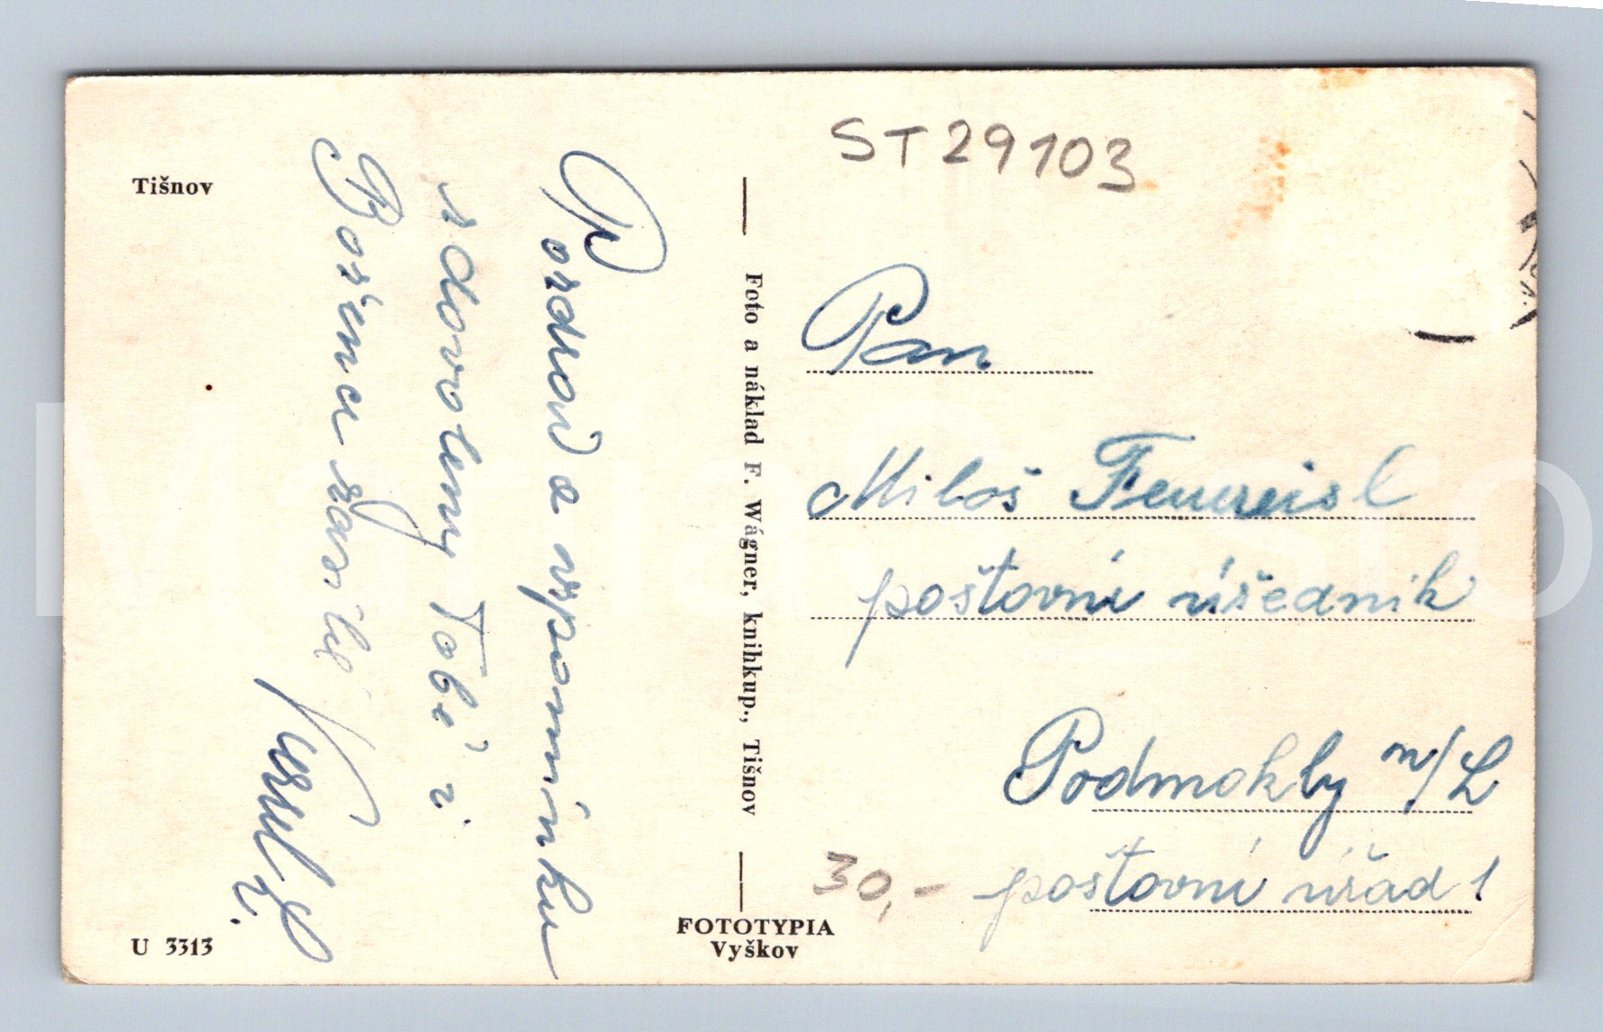 Tišnov
ST29103
Pozdrav a vzpomínku
z dovolený Tobě i
Božence zasílá
Foto a náklad F. Wágner, knihkup., Tišnov
FOTOTYPIA
Vyškov
U 3313
Pan
Miloš Feuereisl
poštovní úředník
Podmokly n/L
poštovní úřad 1
30,-